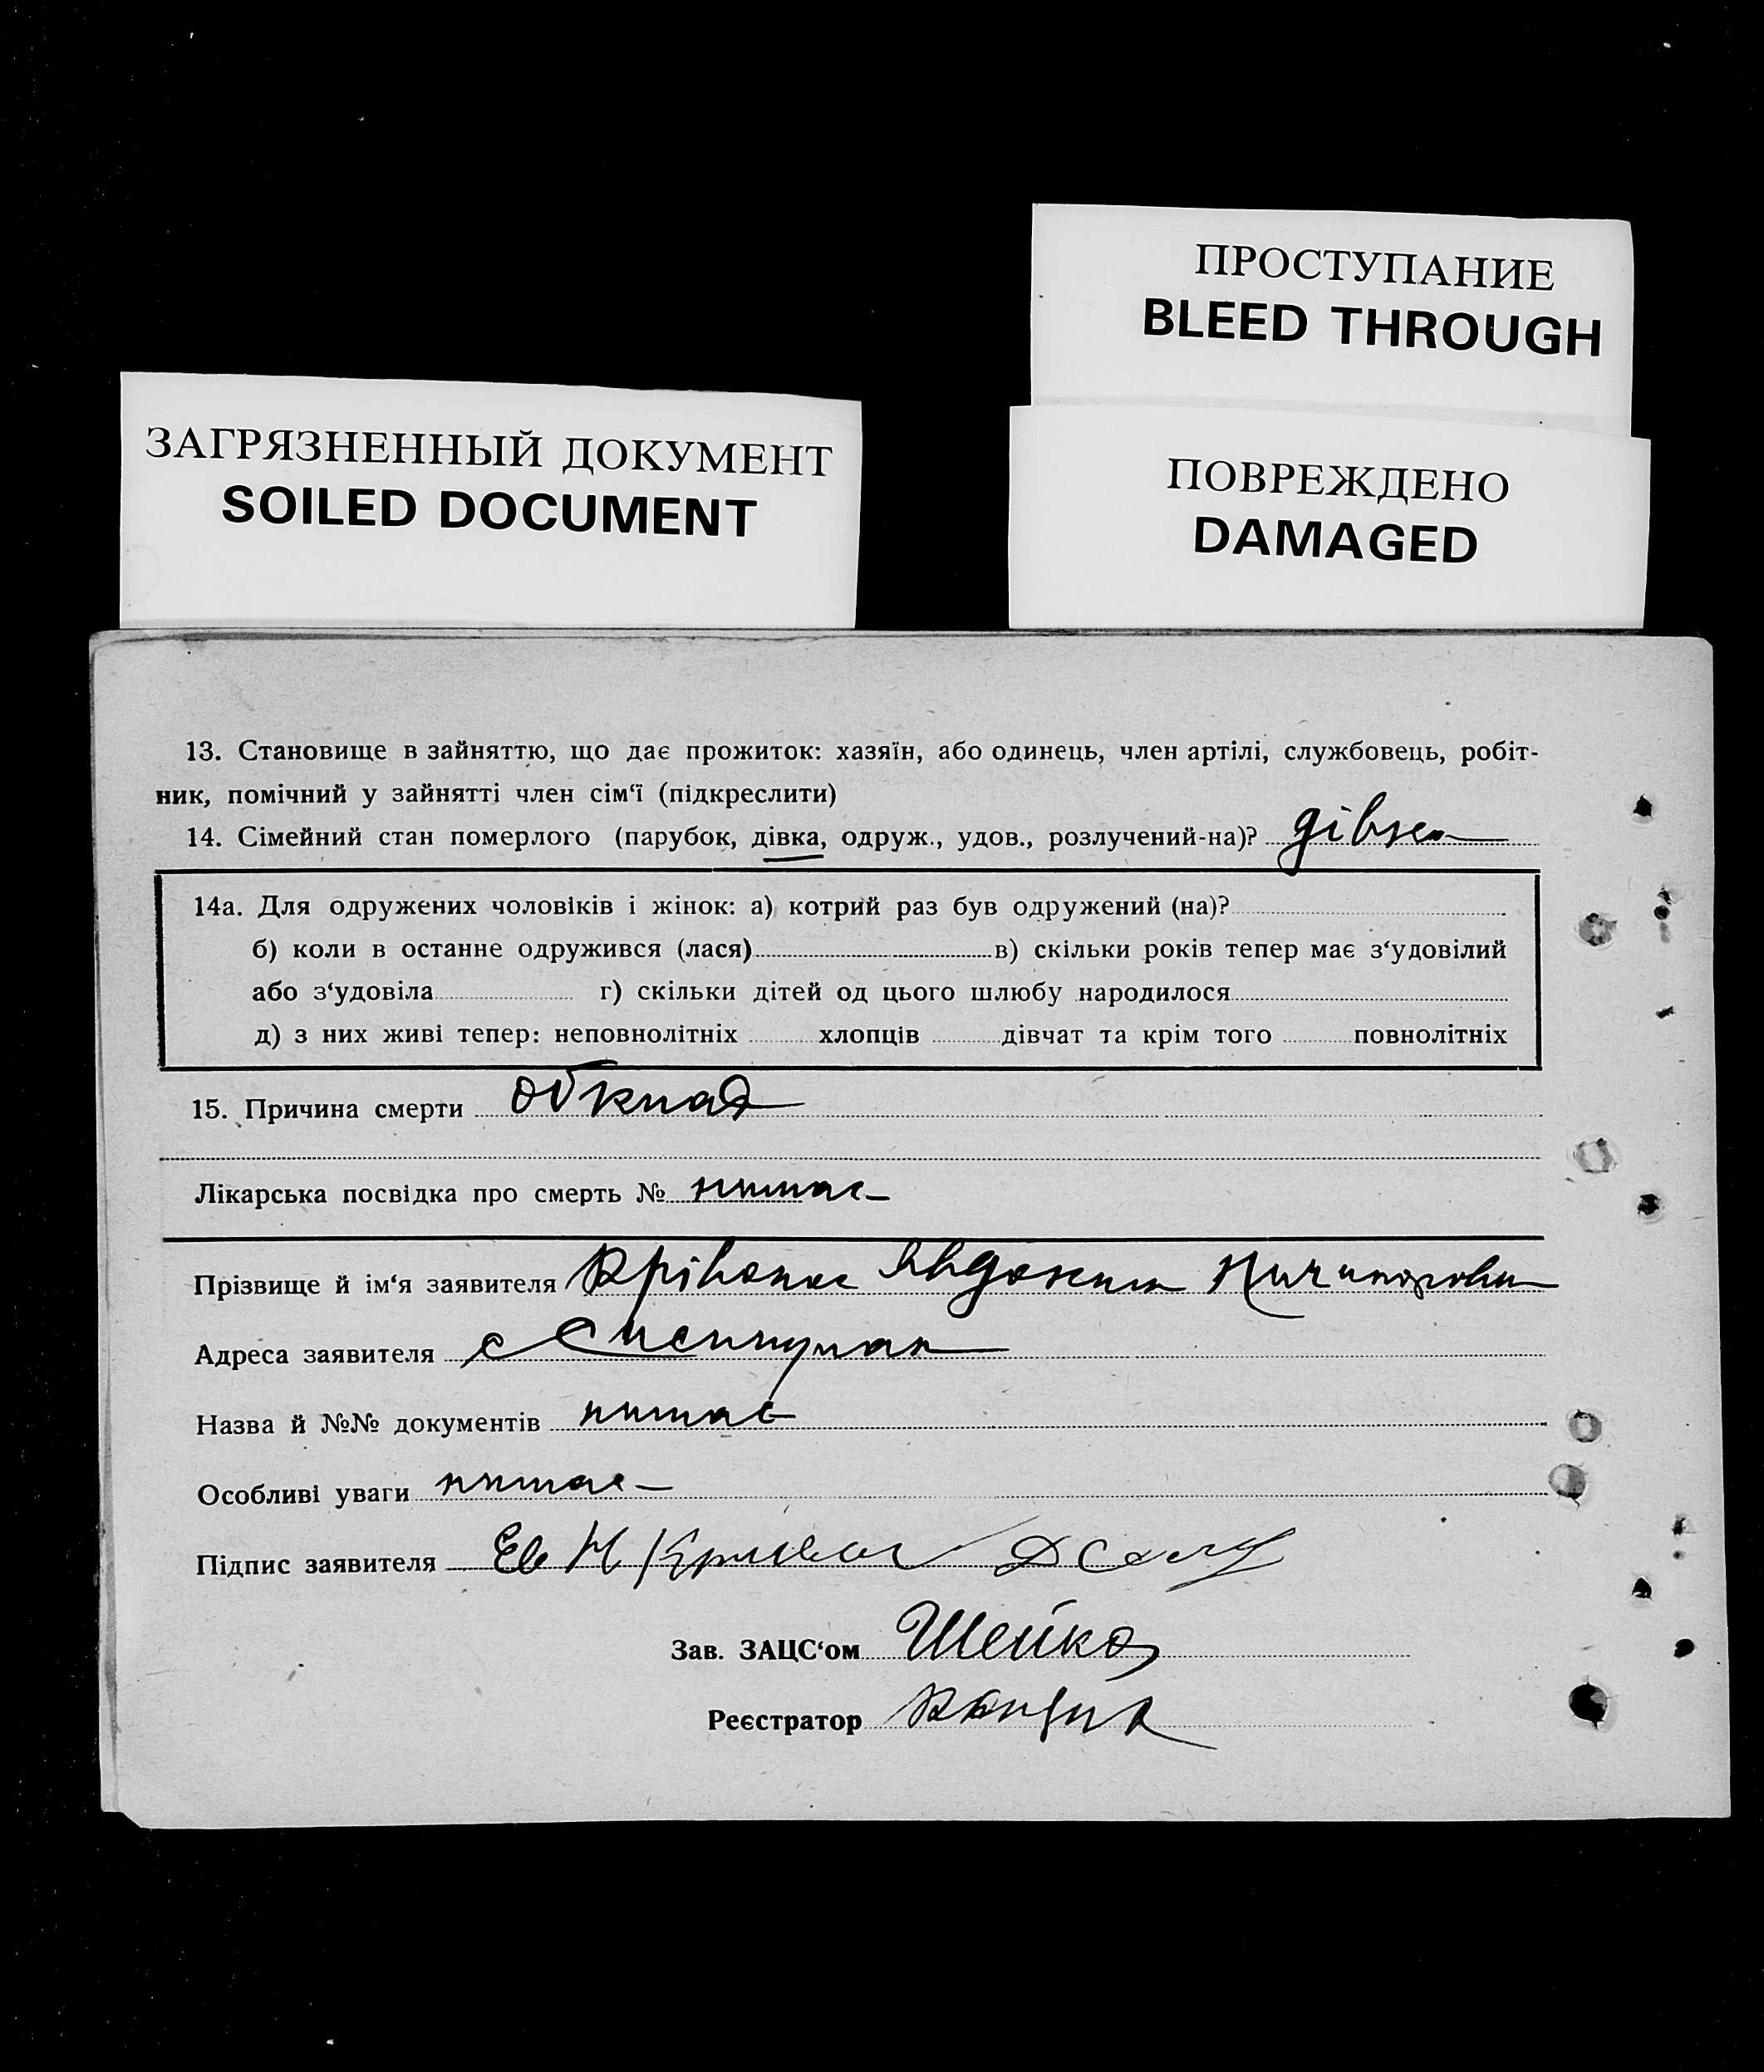 ПРОСТУПАНИЕ
BLEED THROUGH
ЗАГРЯЗНЕННЫЙ ДОКУМЕНТ
SOILED DOCUMENT
ПОВРЕЖДЕНО
DAMAGED
13. Становище в зайняттю, що дає прожиток: хазяїн, або одинець, член артілі, службовець, робіт-
ник, помічний у зайнятті член сім‘ї (підкреслити)
14. Сімейний стан померлого (парубок, дівка, одруж., удов., розлучений-на)? дівка
14а. Для одружених чоловіків і жінок: а) котрий раз був одружений (на)?
б) коли в останне одружився (лася) в) скільки років тепер має з‘удовілий
або з‘удовіла г) скільки дітей од цього шлюбу народилося
д) з них живі тепер: неповнолітніх хлопців дівчат та крім того повнолітніх
15. Причина смерти
Лікарська посвідка про смерть № нимає
Прізвище й ім‘я заявителя
Адреса заявителя с
Назва й №№ документів нимає
Особливі уваги нимає
Підпис заявителя
Зав. ЗАЦС‘ом Шейко
Реєстратор